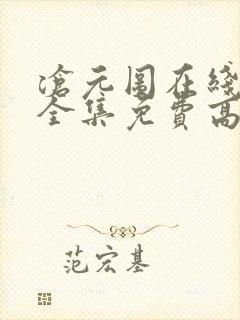 滄元图在綫
全集免費高
范宏基